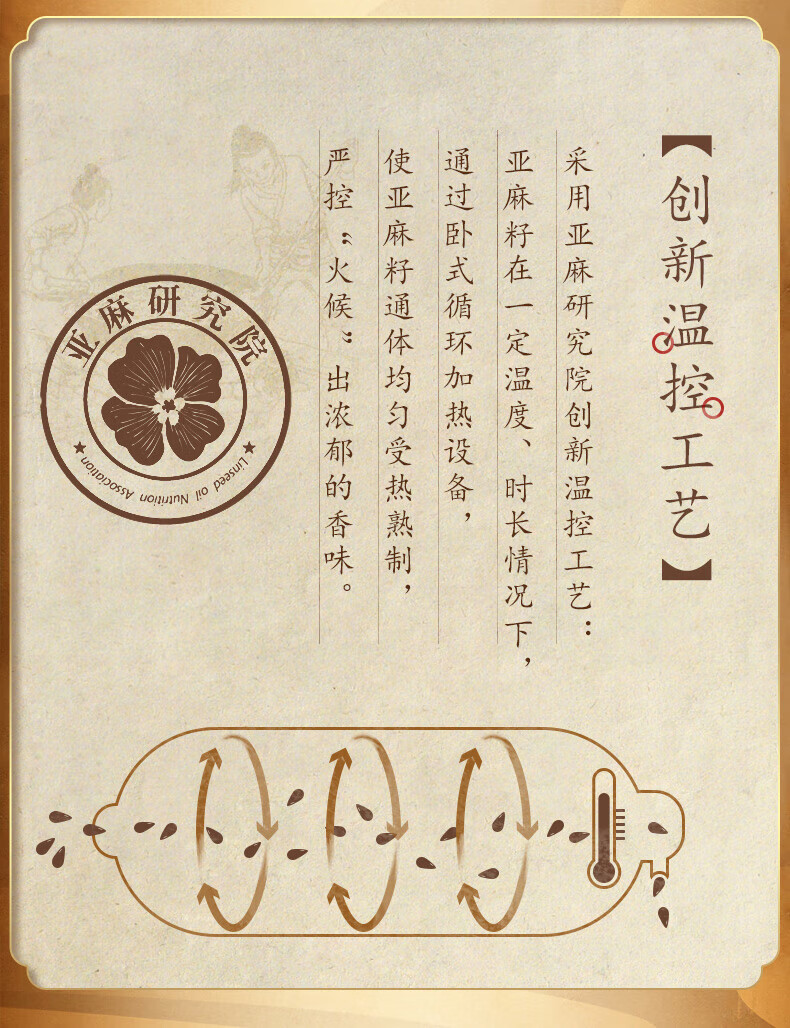 【创新温控工艺】
采用亚麻研究院创新温控工艺：
亚麻籽在一定温度、时长情况下，
通过卧式循环加热设备，
使亚麻籽通体均匀受热熟制，
严控“火候”出浓郁的香味。
亚麻研究院
Linseed oil Nutrition Association